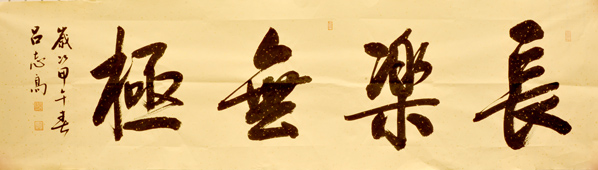 長樂無極
歲次甲午春
呂志高